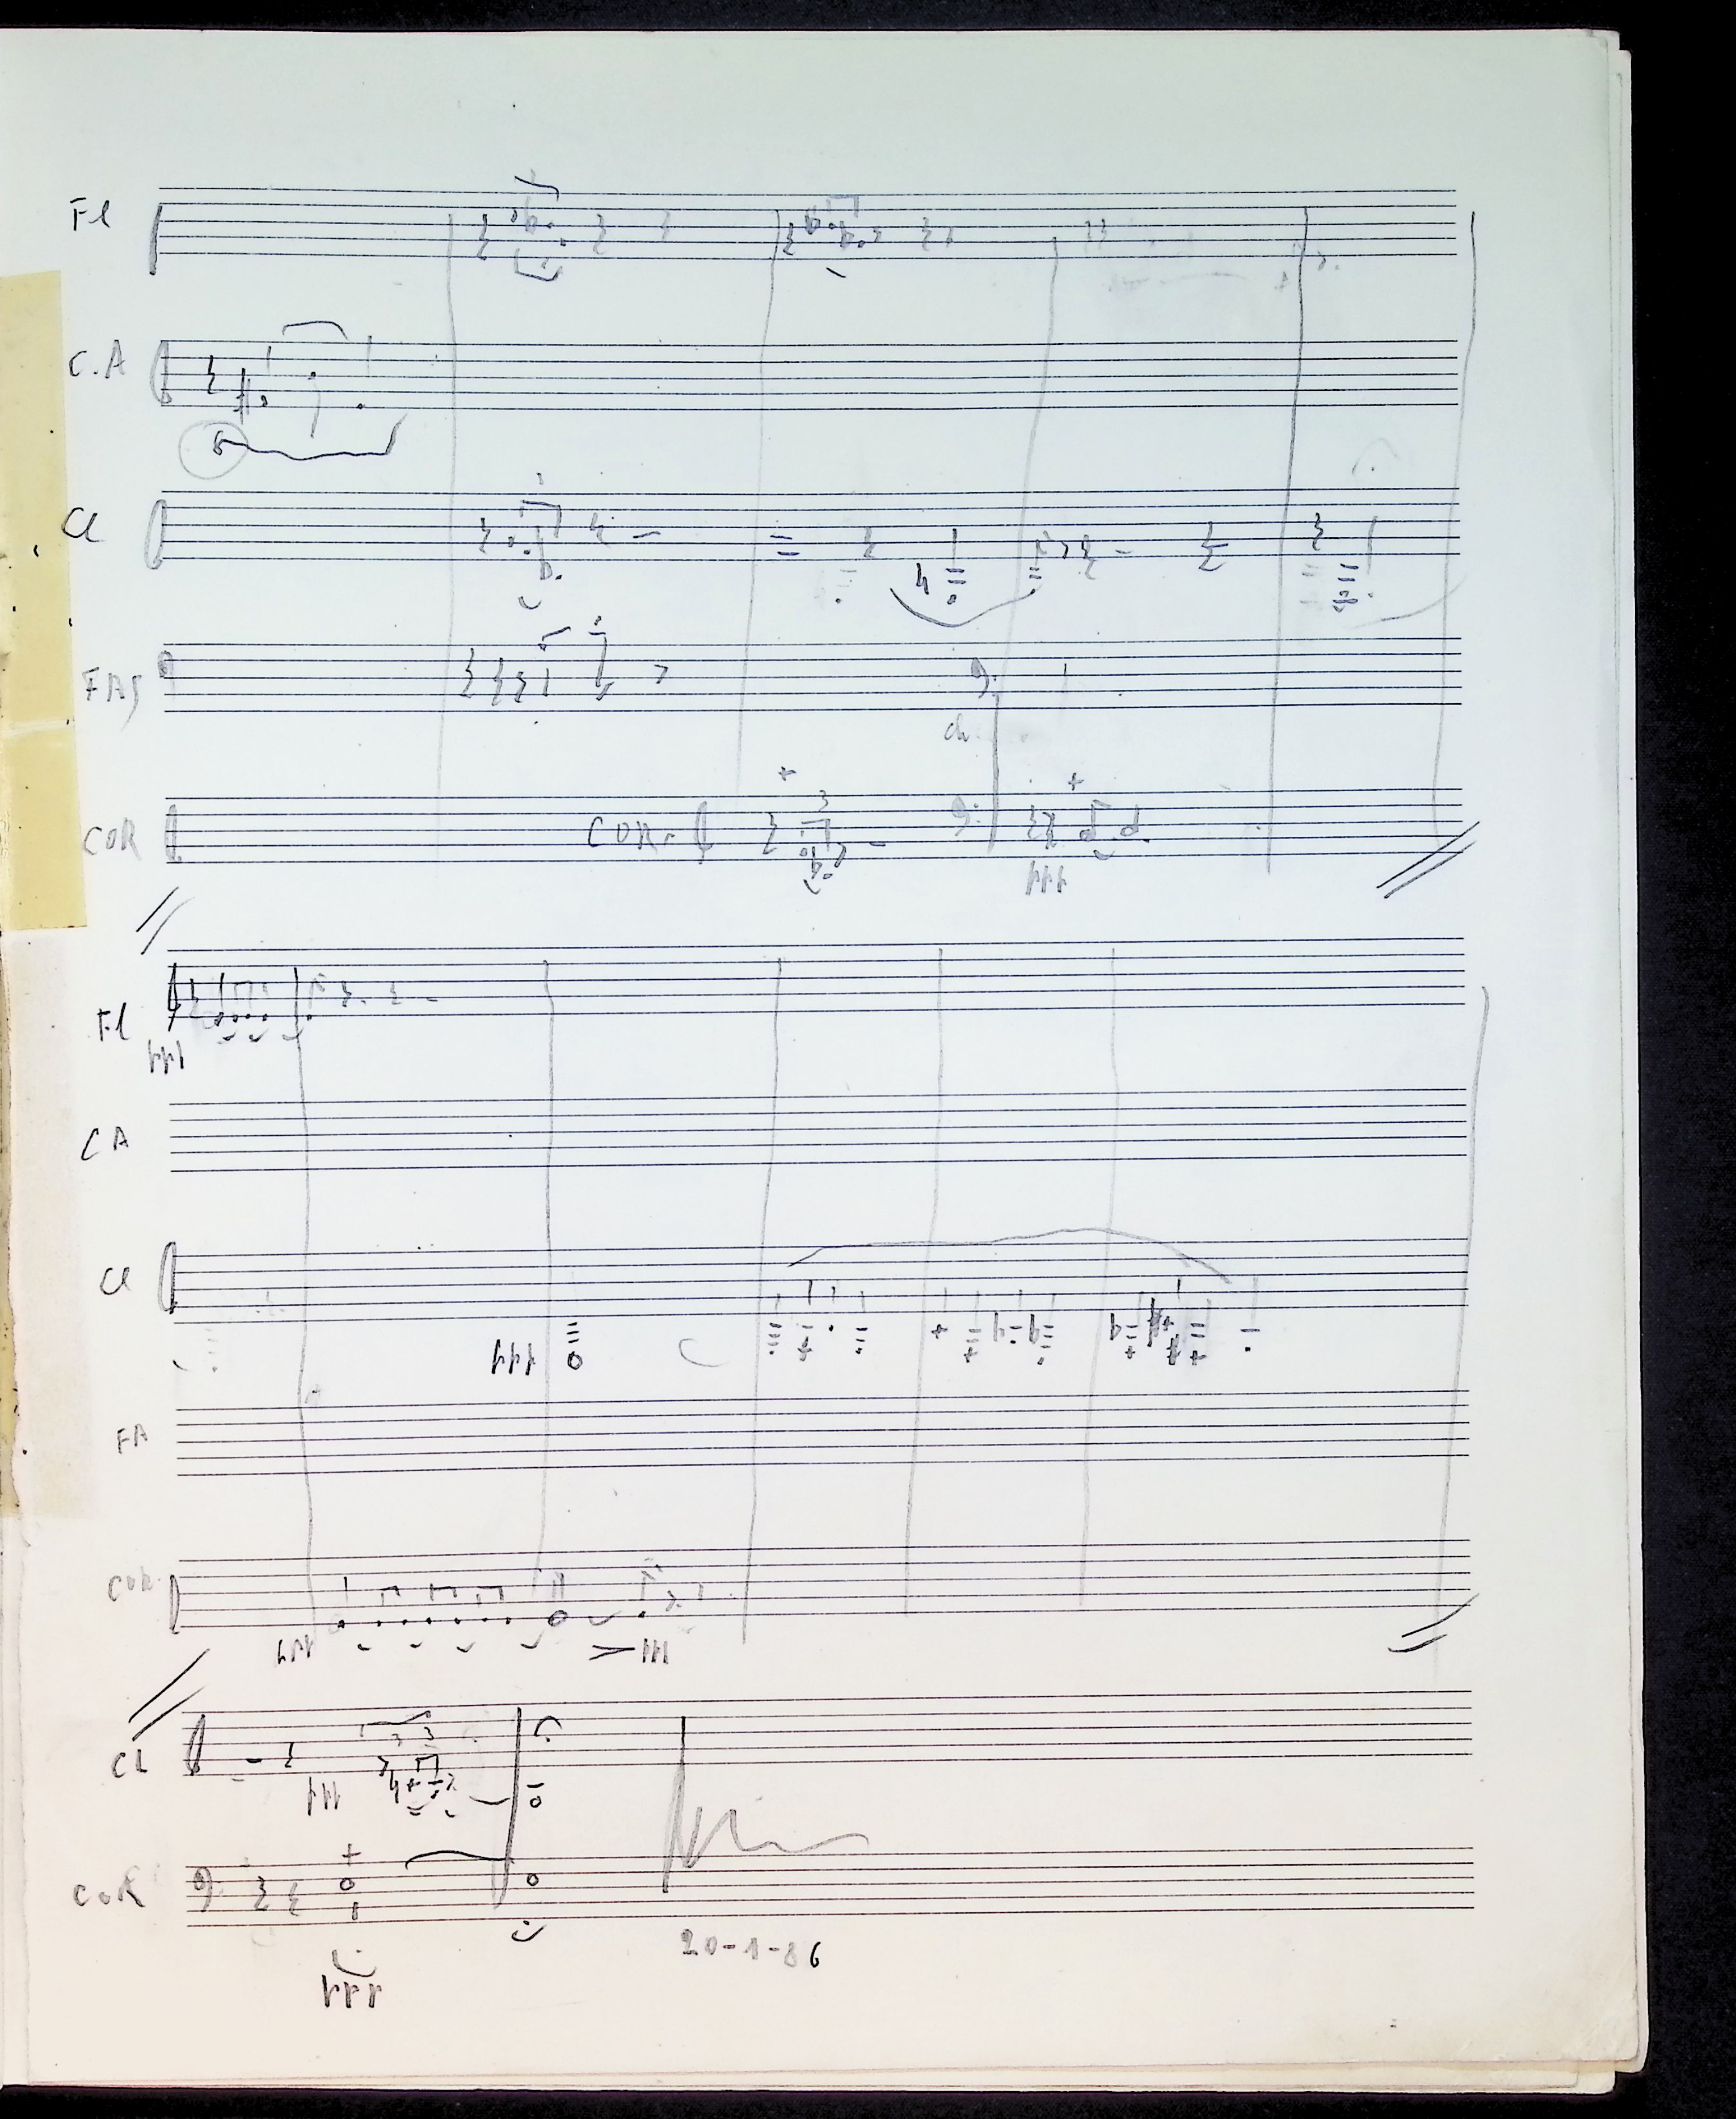 Fl
C.A
Cl
FAg
COR
COR.
ppp
Fl
ppp
CA
Cl
ppp
FA
COR
ppp
ppp
CL
ppp
COR
20-1-86
ppp